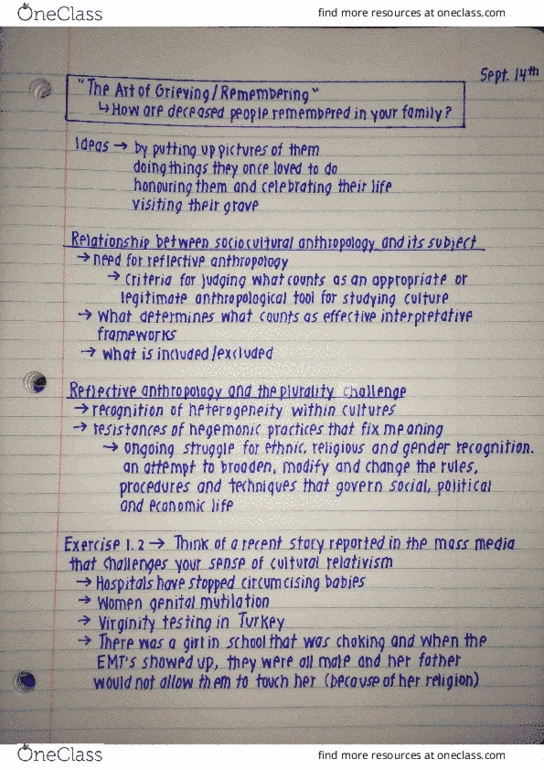 OneClass find more resources at oneclass.com
Sept. 14th
"The Art of Grieving/Remembering"
↳ How are deceased people remembered in your family?
Ideas → by putting up pictures of them
doing things they once loved to do
honouring them and celebrating their life
visiting their grave
Relationship between sociocultural anthropology and its subject
→ need for reflective anthropology
→ Criteria for judging what counts as an appropriate or
legitimate anthropological tool for studying culture
→ What determines what counts as effective interpretative
frameworks
→ What is included/excluded
Reflective anthropology and the plurality challenge
→ recognition of heterogeneity within cultures
→ resistances of hegemonic practices that fix meaning
→ ongoing struggle for ethnic, religious and gender recognition.
an attempt to broaden, modify and change the rules,
procedures and techniques that govern social, political
and economic life
Exercise 1.2 → Think of a recent story reported in the mass media
that challenges your sense of cultural relativism
→ Hospitals have stopped circumcising babies
→ Women genital mutilation
→ Virginity testing in Turkey
→ There was a girl in school that was choking and when the
EMT's showed up, they were all male and her father
would not allow them to touch her (because of her religion)
OneClass find more resources at oneclass.com